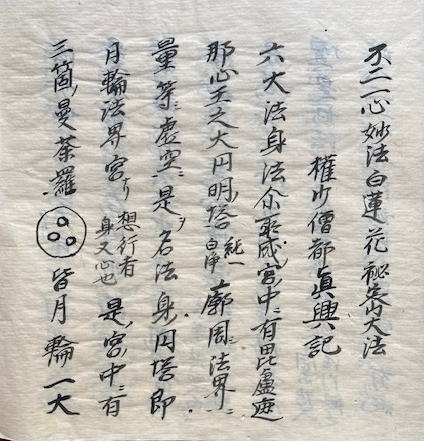 不二一心妙法白蓮花秘密大法
権少僧都真興記
六大法身法尓所成宮中ニ有毘盧遮
那心王之大円明塔純一白浄廓周ニ法界ニ
量等ニ虚空ニ是ヲ名法身円塔即
月輪法界宮ナリ想行者身又心也是宮中ニ有
三箇曼荼羅皆月輪一大